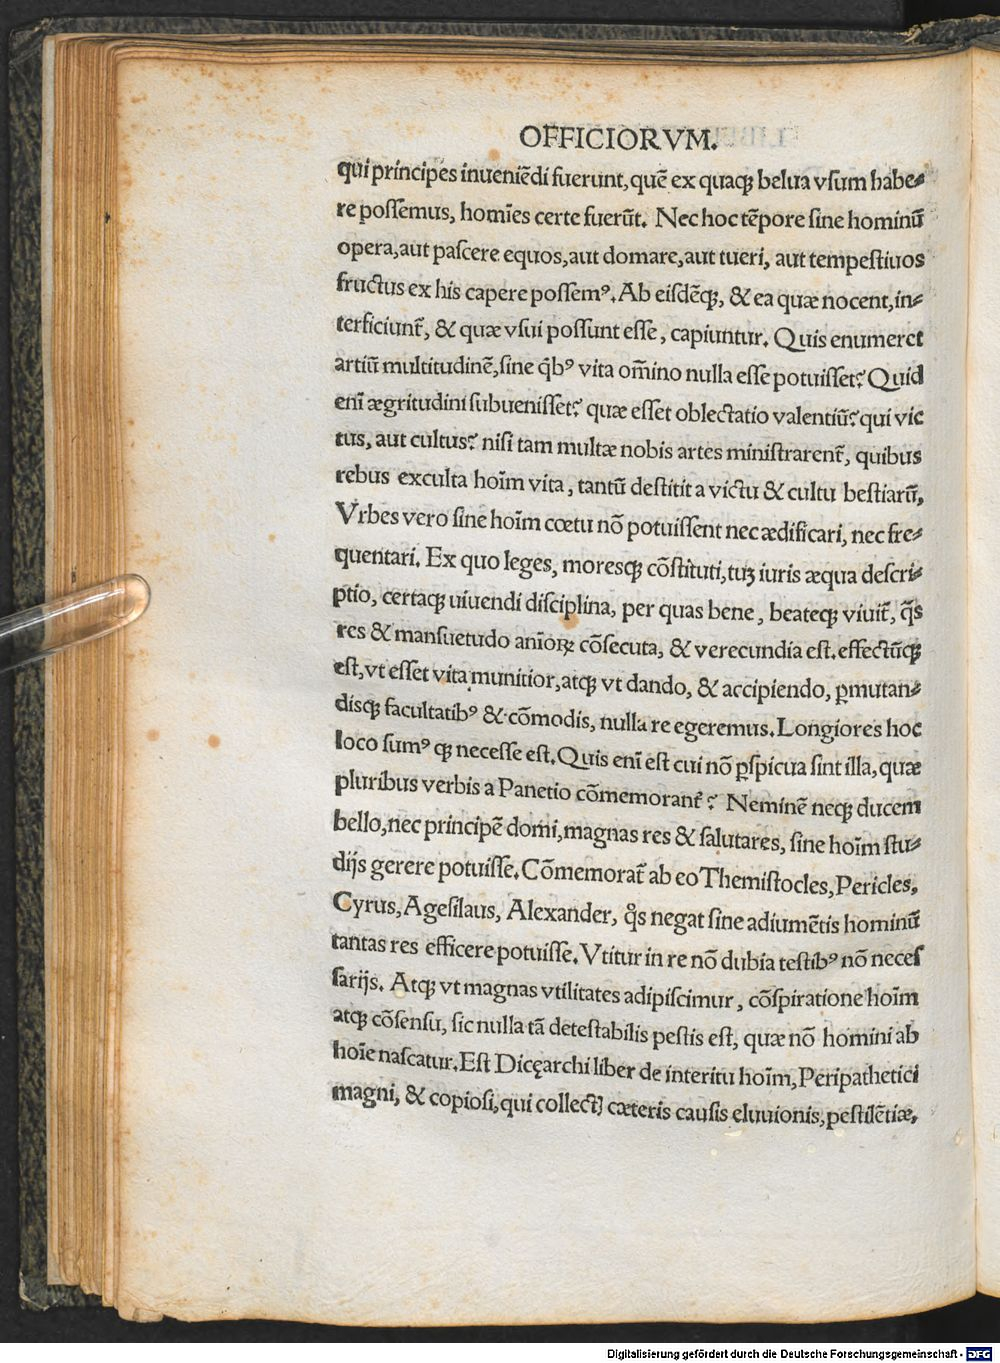 OFFICIORVM.
qui principes inueniēdi fuerunt, quē ex quaqꝫ belua vſum habe⸗
re poſſemus, homīes certe fuerūt. Nec hoc tēpore ſine hominū
opera, aut paſcere equos, aut domare, aut tueri, aut tempeſtiuos
fructus ex his capere poſſemꝰ. Ab eiſdēqꝫ, & ea quæ nocent, in⸗
terficiunt̃, & quæ vſui poſſunt eſſe, capiuntur. Quis enumeret
artiū multitudinē, ſine q̄bꝰ vita om̄ino nulla eſſe potuiſſet? Quid
enī ægritudini ſubueniſſet? quæ eſſet oblectatio valentiū? qui vic
tus, aut cultus? niſi tam multæ nobis artes miniſtrarent̃, quibus
rebus exculta hoīm vita, tantū deſtitit a victu & cultu beſtiarū,
Vrbes vero ſine hoīm cœtu nō potuiſſent nec ædificari, nec fre⸗
quentari. Ex quo leges, moresqꝫ cōſtituti, tuꝫ iuris æqua deſcri⸗
ptio, certaqꝫ uiuendi diſciplina, per quas bene, beateqꝫ viuit̃, q̄s
res & manſuetudo anīoꝝ cōſecuta, & verecundia eſt. effectūqꝫ
eſt, vt eſſet vita munitior, atqꝫ vt dando, & accipiendo, ꝑmutan⸗
disqꝫ facultatibꝰ & cōmodis, nulla re egeremus. Longiores hoc
loco ſumꝰ qꝫ neceſſe eſt. Quis enī eſt cui nō ꝑſpicua ſint illa, quæ
pluribus verbis a Panetio cōmemorant̃? Neminē neqꝫ ducem
bello, nec principē domi, magnas res & ſalutares, ſine hoīm ſtu⸗
dijs gerere potuiſſe. Cōmemorat̃ ab eo Themiſtocles, Pericles,
Cyrus, Ageſilaus, Alexander, q̊s negat ſine adiumētis hominū
tantas res efficere potuiſſe. Vtitur in re nō dubia teſtibꝰ nō neceſ
ſarijs. Atqꝫ vt magnas vtilitates adipiſcimur, cōſpiratione hoīm
atqꝫ cōſenſu, ſic nulla tā deteſtabilis peſtis eſt, quæ nō homini ab
hoīe naſcatur. Eſt Dicęarchi liber de interitu hoīm, Peripathetici
magni, & copioſi, qui collect] cæteris cauſis eluuionis, peſtilētiæ,
Digitalisierung gefördert durch die Deutsche Forschungsgemeinschaft - DFG